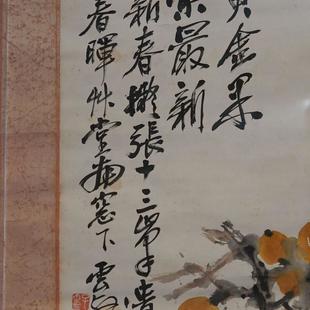 黄金果
最新
新春擬張十三
春暉艸堂南窓下 雲